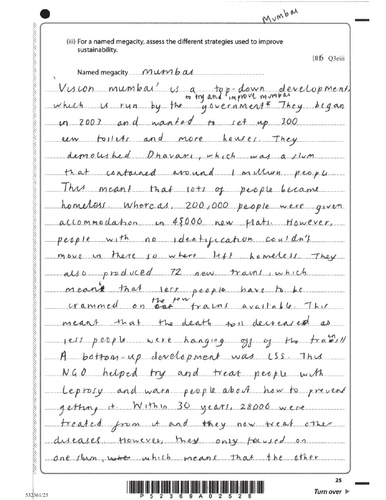 Mumbai
(ii) For a named megacity, assess the different strategies used to improve
sustainability.
Q3eiii
Named megacity Mumbai
'Vision mumbai' is a top-down development,
to try and improve mumbai
which is run by the government* They began
in 2003 and wanted to set up 300
new toilets and more houses. They
demolished Dharavi, which was a slum
that contained around 1 million people.
This meant that lots of people became
homeless. Whereas, 200,000 people were given
accommodation in 48000 new flats. However,
people with no identification couldn't
move in there so where left homeless. They
also produced 72 new trains, which
meant that less people have to be
the few
crammed on trains available. This
meant that the death toll decreased as
less people were hanging off of the train!!
A bottom-up development was LSS. This
NGO helped try and treat people with
Leprosy and warn people about how to prevent
getting it. Within 30 years, 28000 were
treated from it and they now treat other
diseases. However, they only focused on
one slum, which means that the other
25
Turn over
P52369A02528
532361/25